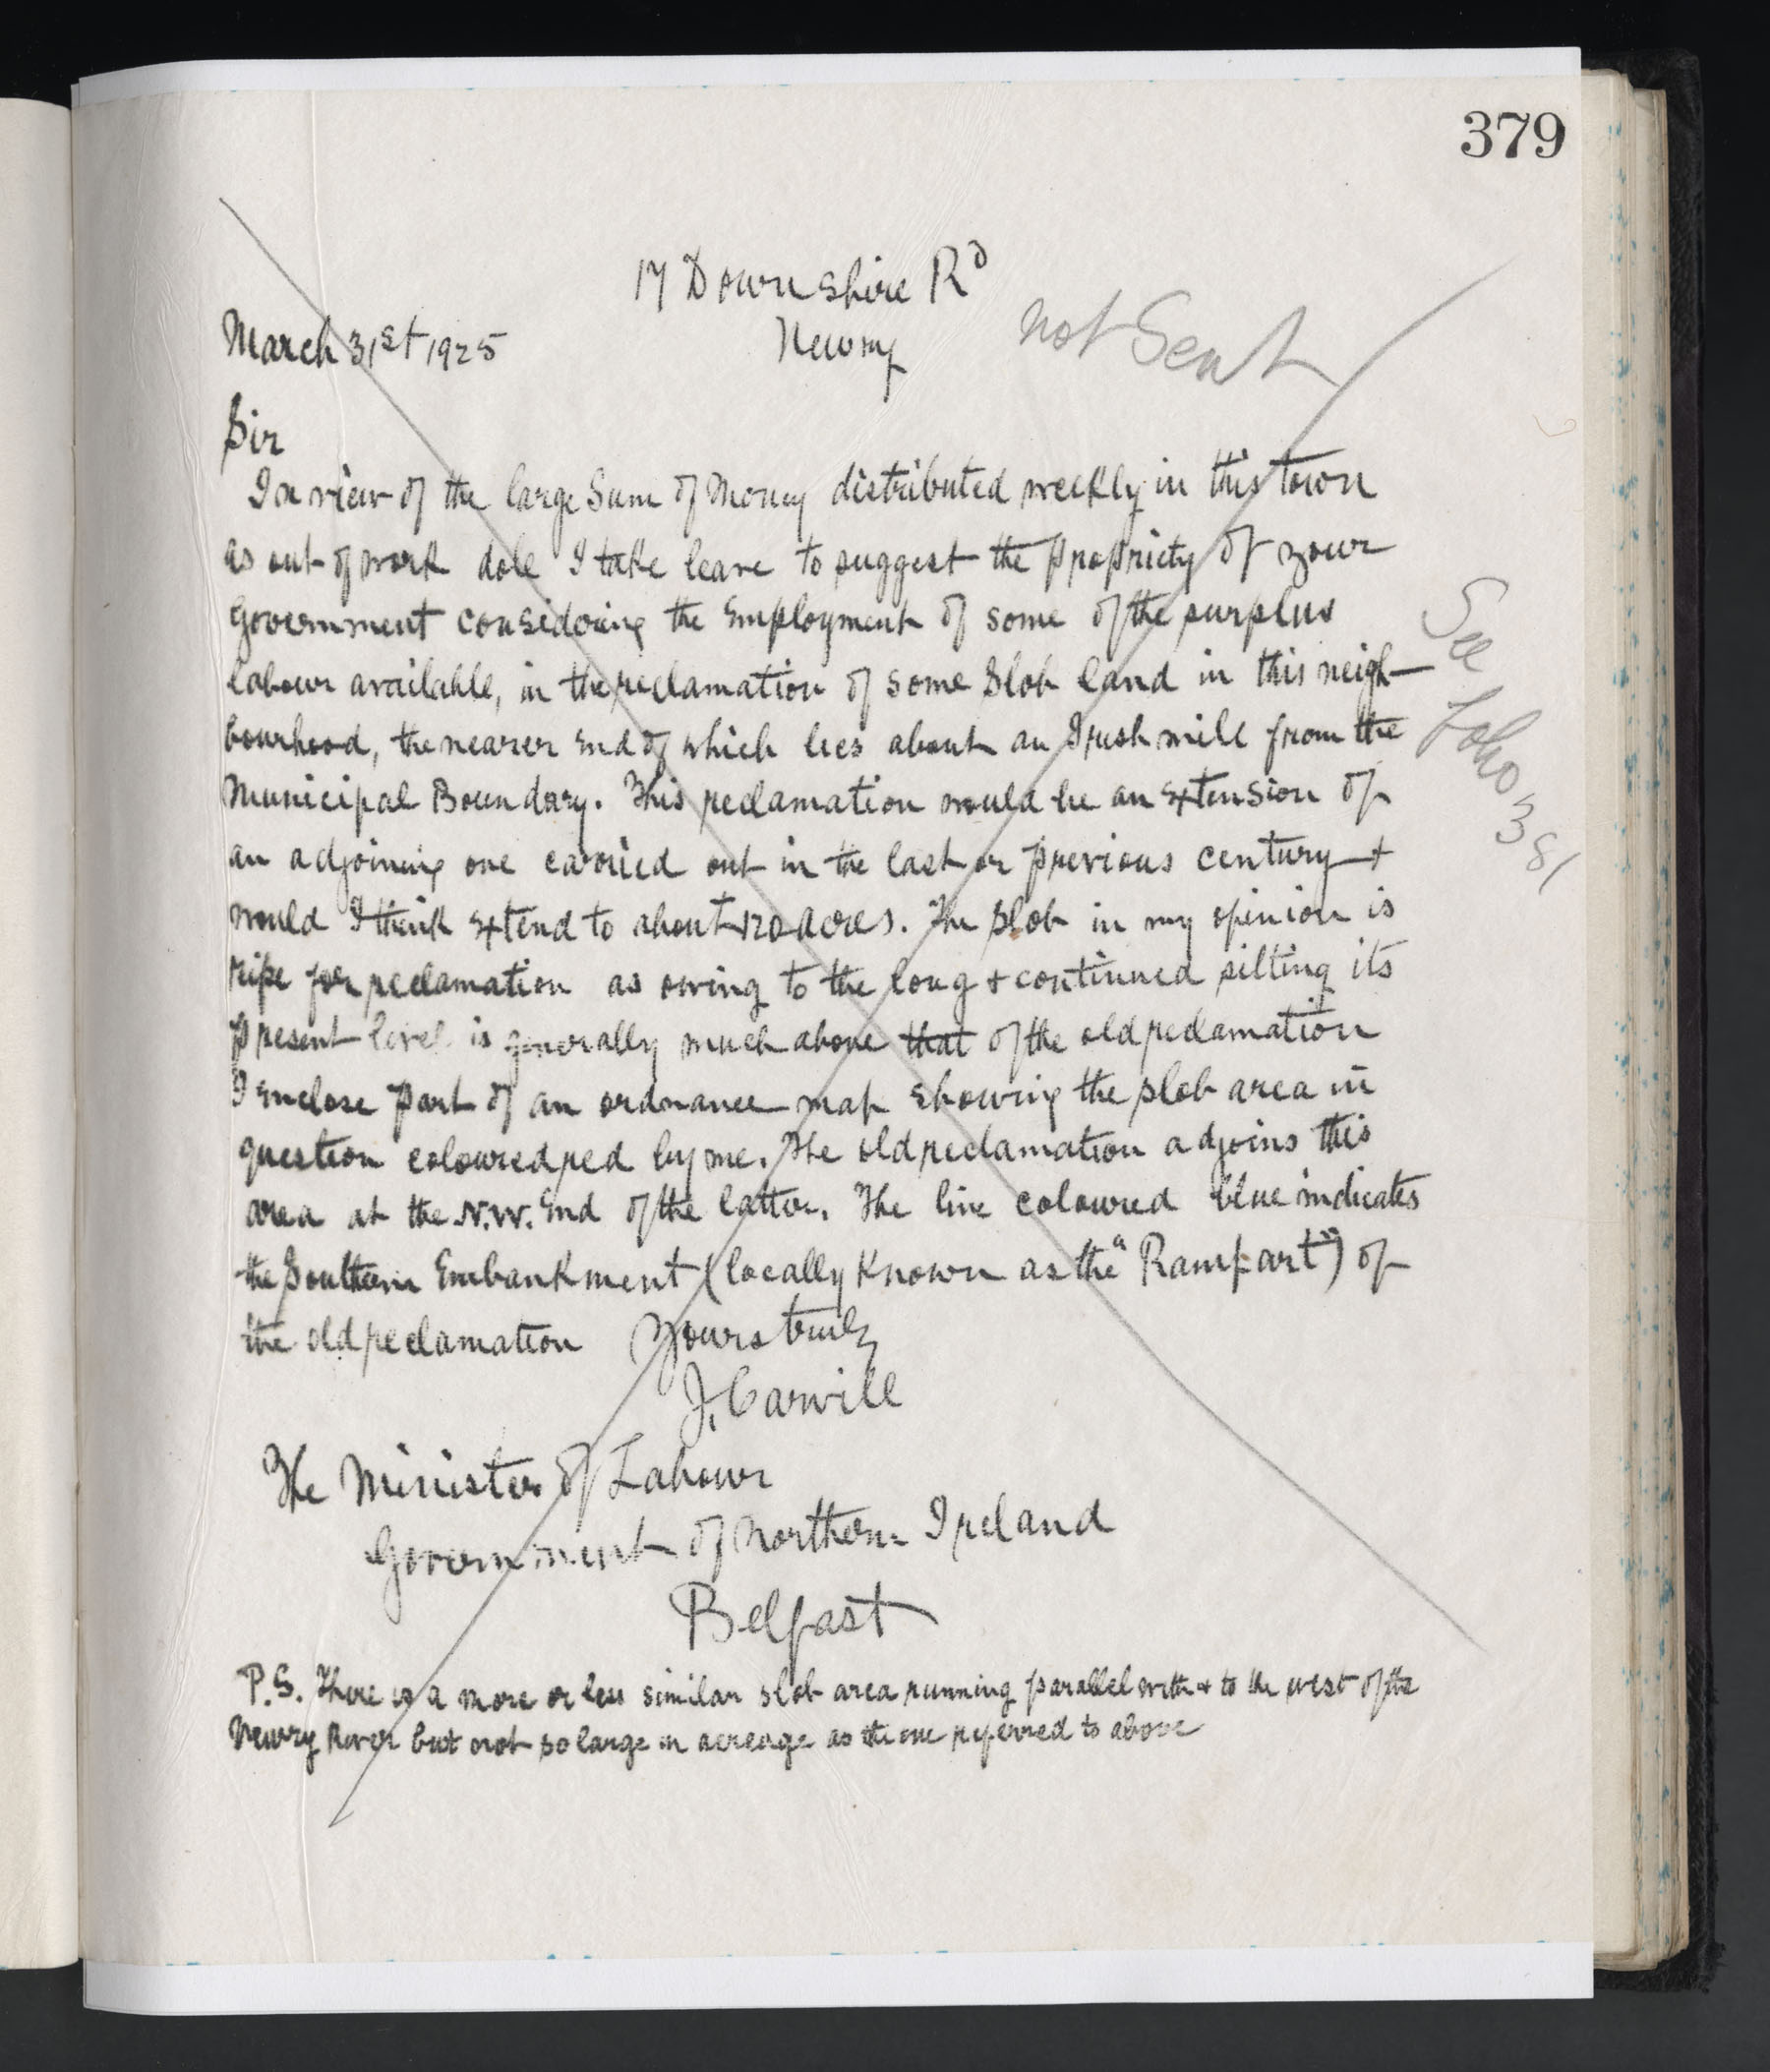 379
17 Downshire Rd
Newry
not Sent
March 31st 1925
Sir
In view of the large Sum of Money distributed weekly in this town
as out of work dole I take leave to suggest the propriety of your
Government considering the Employment of some of the surplus
labour available, in the reclamation of some Slob land in this neigh-
bourhood, the nearer End of which lies about an Irish mile from the
Municipal Boundary. This reclamation would be an Extension of
an adjoining one carried out in the last or previous century +
would I think Extend to about 120 acres. The Slob in my opinion is
ripe for reclamation as owing to the long + continued silting its
present level is generally much above that of the old reclamation
I Enclose part of an ordnance map showing the slob area in
question coloured red by me. The old reclamation adjoins this
area at the N.W. End of the latter. The line coloured blue indicates
the Southern Embankment (locally Known as the "Rampart") of
the old reclamation Yours truly
J. Carvill
The Minister of Labour
Government of Northern Ireland
Belfast
P.S. There is a more or less similar slob area running parallel with + to the west of the
Newry River but not so large in acreage as the one referred to above
See
Folio 381